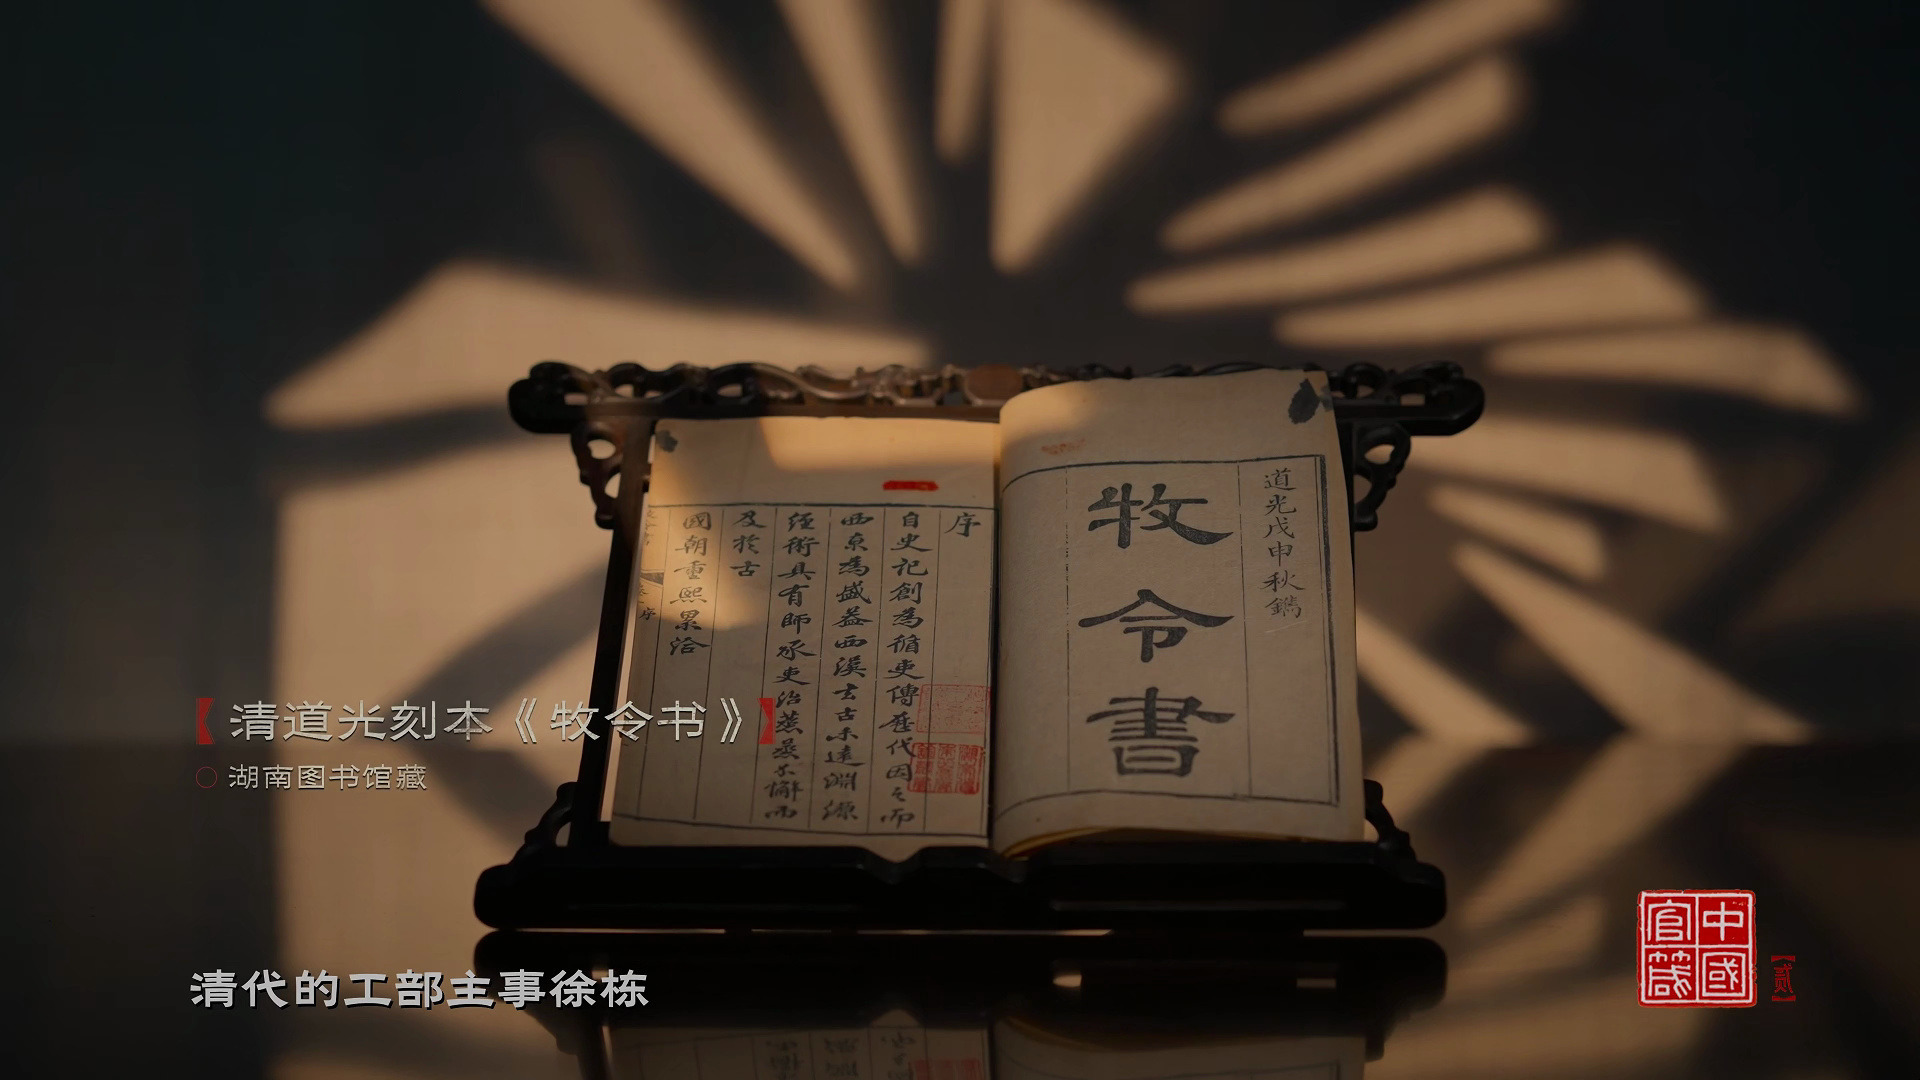 道光戊申秋鐫
牧令書
序
自史記創為循吏傳歷代因之而
西京為盛蓋西漢去古未遠淵源
經術具有師承吏治蒸蒸不懈而
及於古
國朝重熙累洽
【清道光刻本《牧令书》】
湖南图书馆藏
清代的工部主事徐栋
中國官箴
【贰】